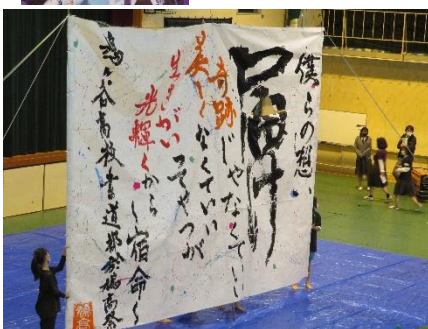 僕らの想い
届け
奇跡じゃなくていい
美しくなくていい
生きがいってやつが
光輝くから ～宿命～
鳩ヶ谷高校書道部